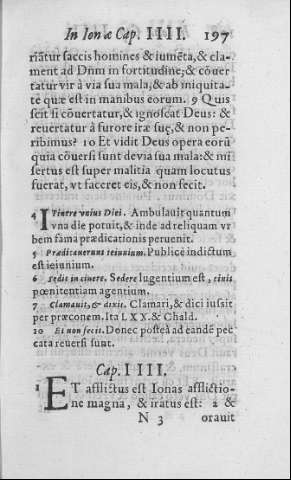 In Ionæ Cap. IIII. 197
riātur saccis homines & iumēta, & cla-
ment ad Dnm in fortitudine, & cōuer
tatur vir à via sua mala, & ab iniquita-
te quæ est in manibus eorum. 9 Quis
scit si cōuertatur, & ignoscat Deus: &
reuertatur à furore iræ suę, & non pe-
ribimus? 10 Et vidit Deus opera eorū
quia cōuersi sunt de via sua mala: & mi
sertus est super malitia quam locutus
fuerat, vt faceret eis, & non fecit.
4 Itinere vnius Diei. Ambulauit quantum
vna die potuit, & inde ad reliquam vr
bem fama prædicationis peruenit.
5 Prædicauerunt ieiunium. Publicè indictum
est ieiunium.
6 Sedit in cinere. Sedere lugentium est, cinis
pœnitentiam agentium.
7 Clamauit, & dixit. Clamari, & dici iussit
per præconem. Ita LXX. & Chald.
10 Et non fecit. Donec posteà ad eandē pec
cata reuersi sunt.
Cap. IIII.
1 ET afflictus est Ionas afflictio-
ne magna, & iratus est: 2 &
N 3 orauit